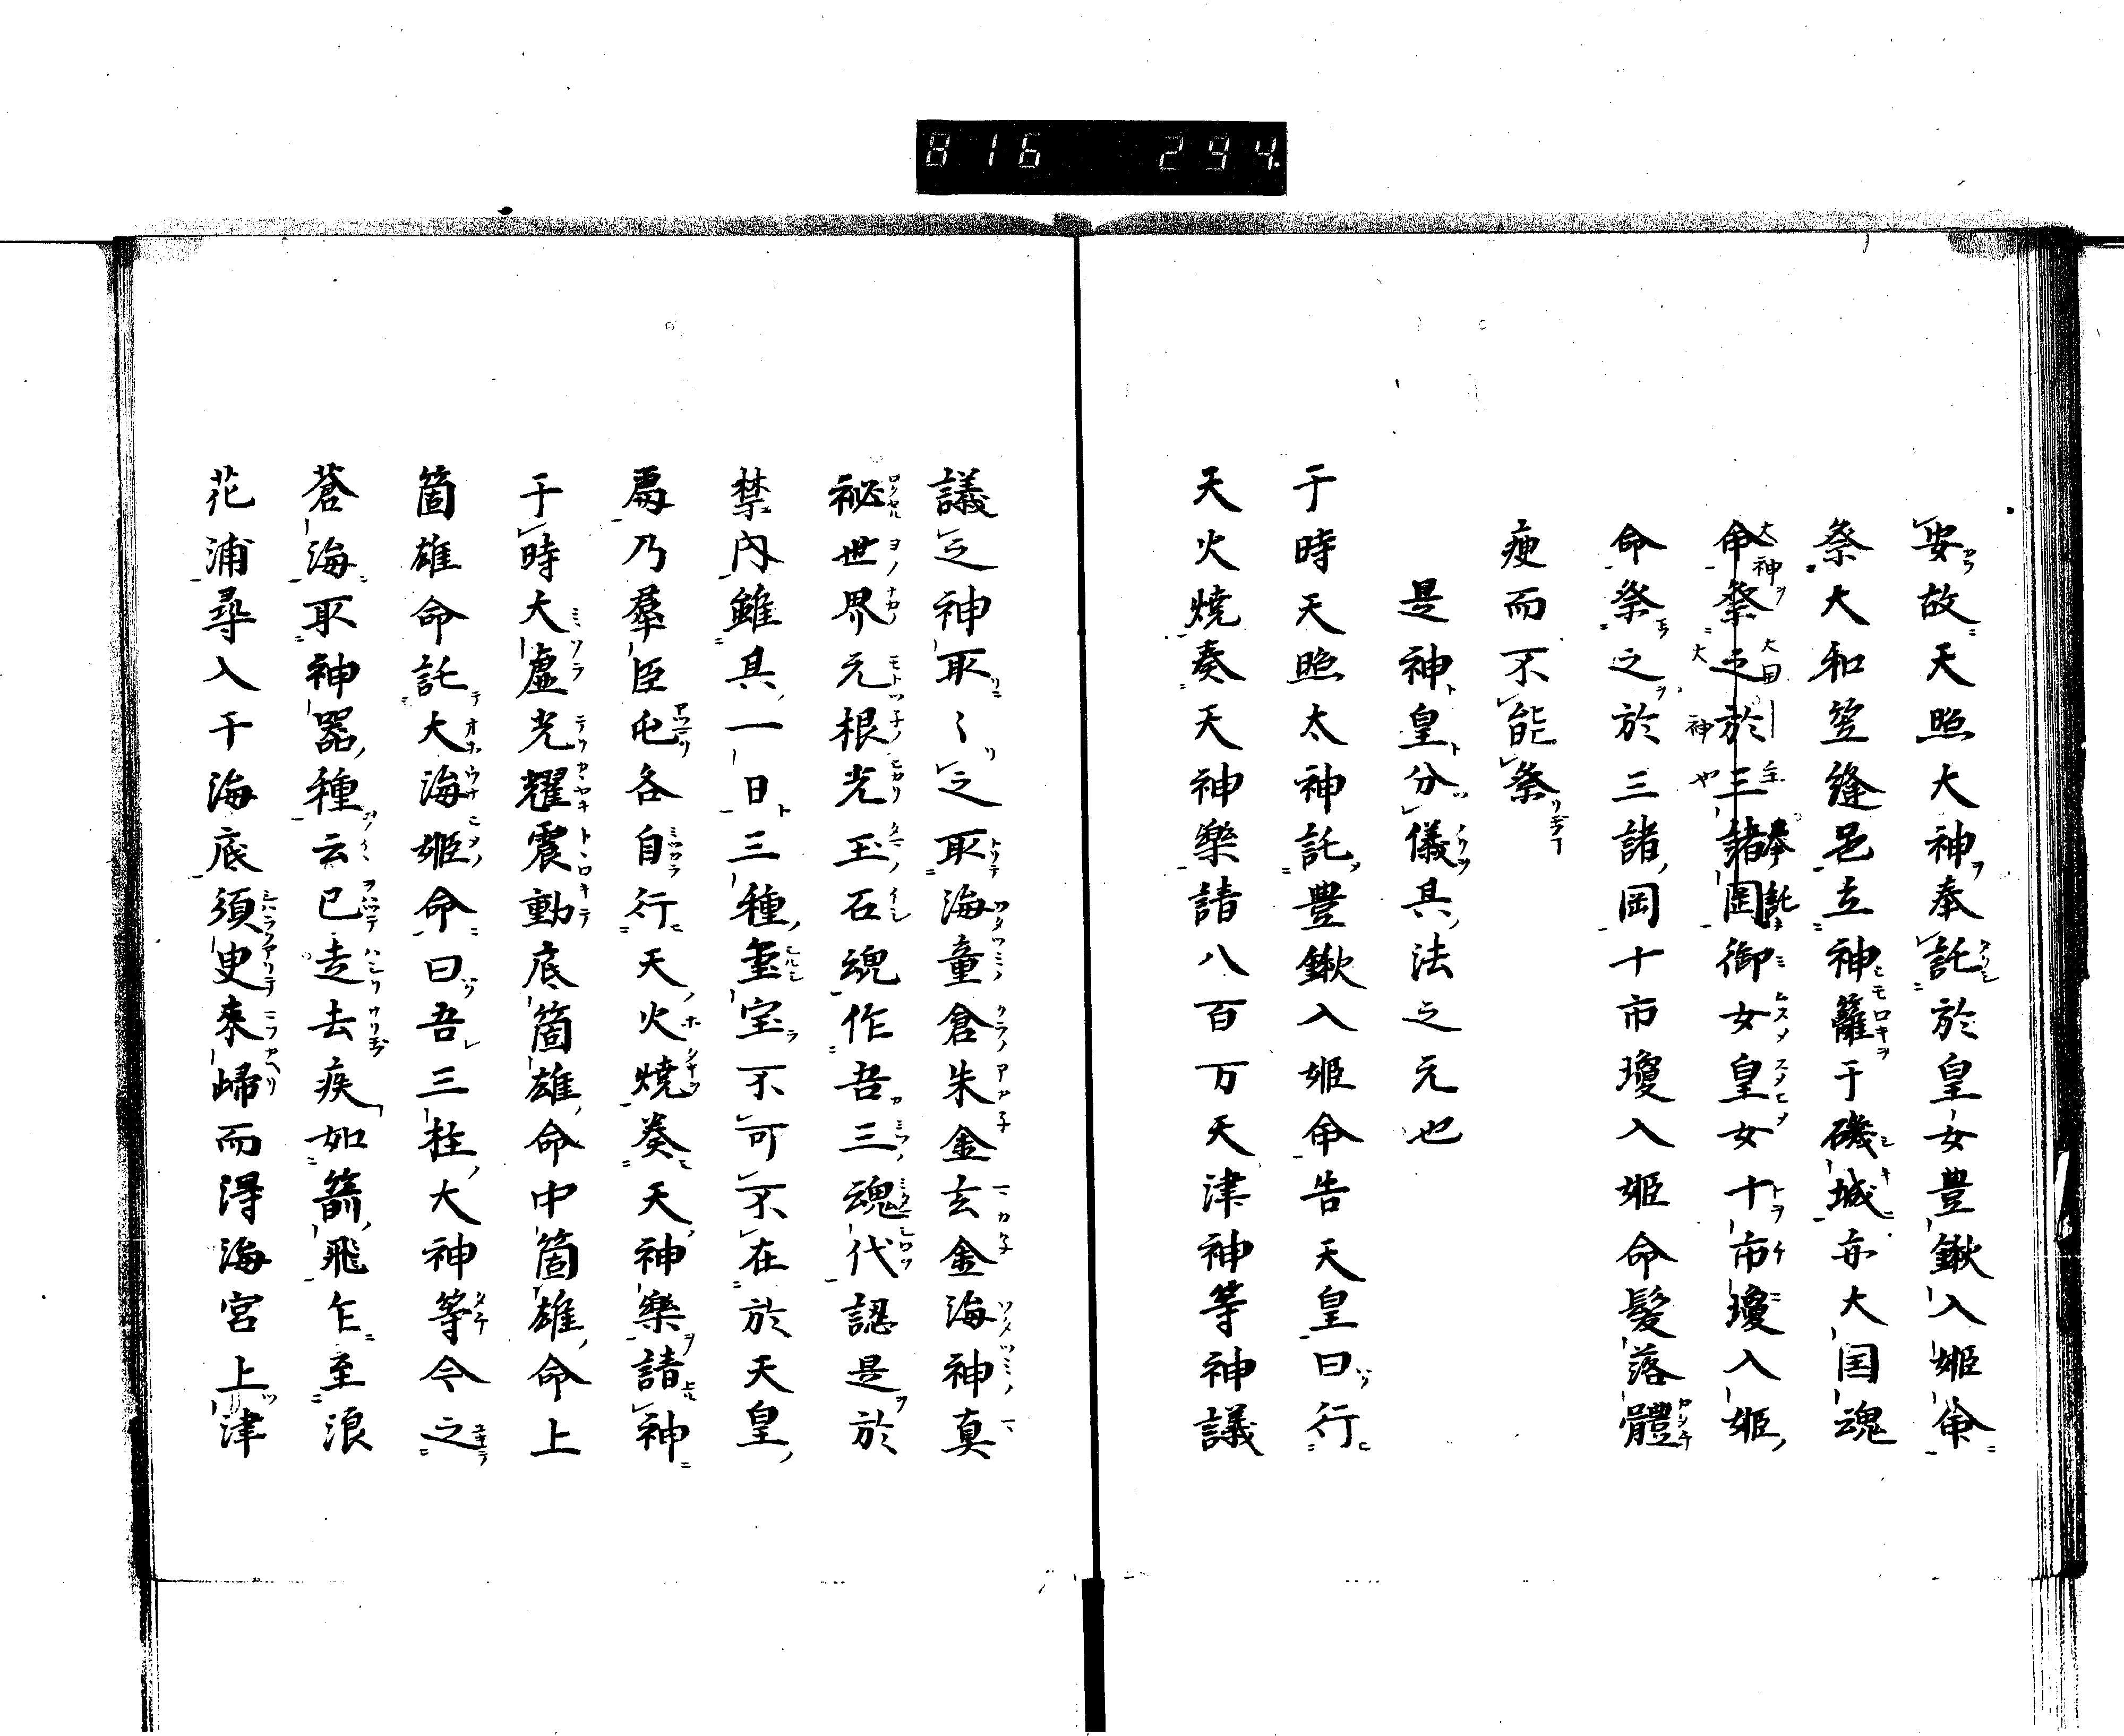 816 294
安故天照大神奉託於皇女豊鍬入姫命
祭大和笠縫邑立神籬于磯城亦大国魂
命祭之於三諸岡御女皇女十市瓊入姫
命祭之於三諸岡十市瓊入姫命髪落體
痩而不能祭
是神皇分儀其法之元也
于時天照太神託豊鍬入姫命告天皇曰行
天火焼奏天神樂請八百万天津神等神議
議之神取〻之取海童倉朱金玄金海神真
祕世界元根光玉石魂作吾三魂代認是於
禁内雖具一日三種璽宝不可不在於天皇
乃羣臣屯各自行天火焼奏天神樂請神
于時大虚光耀震動底箇雄命中箇雄命上
箇雄命託大海姫命曰吾三柱大神等令之
蒼海取神器種云已走去疾如箭飛乍至浪
花浦尋入于海底須臾来帰而得海宮上津